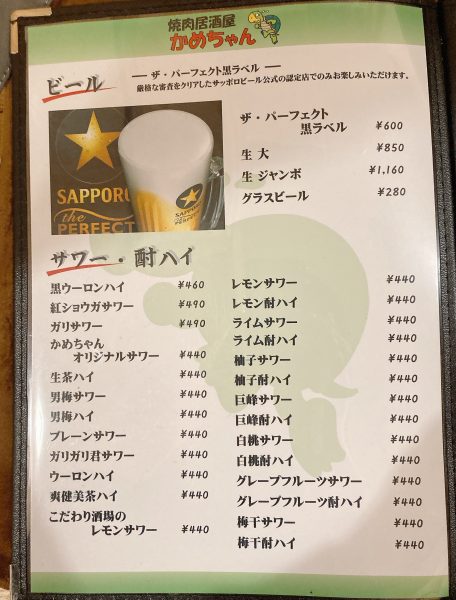 焼肉居酒屋
かめちゃん
ビール
― ザ・パーフェクト黒ラベル ―
厳格な審査をクリアしたサッポロビール公式の認定店でのみお楽しみいただけます。
SAPPORO
the
PERFECT
SAPPORO
ザ・パーフェクト
黒ラベル ¥600
生 大 ¥850
生 ジャンボ ¥1,160
グラスビール ¥280
サワー・酎ハイ
黒ウーロンハイ ¥460
紅ショウガサワー ¥490
ガリサワー ¥490
かめちゃん
オリジナルサワー ¥440
生茶ハイ ¥440
男梅サワー ¥440
男梅ハイ ¥440
プレーンサワー ¥440
ガリガリ君サワー ¥440
ウーロンハイ ¥440
爽健美茶ハイ ¥440
こだわり酒場の
レモンサワー ¥440
レモンサワー ¥440
レモン酎ハイ ¥440
ライムサワー ¥440
ライム酎ハイ ¥440
柚子サワー ¥440
柚子酎ハイ ¥440
巨峰サワー ¥440
巨峰酎ハイ ¥440
白桃サワー ¥440
白桃酎ハイ ¥440
グレープフルーツサワー ¥440
グレープフルーツ酎ハイ ¥440
梅干サワー ¥440
梅干酎ハイ ¥440